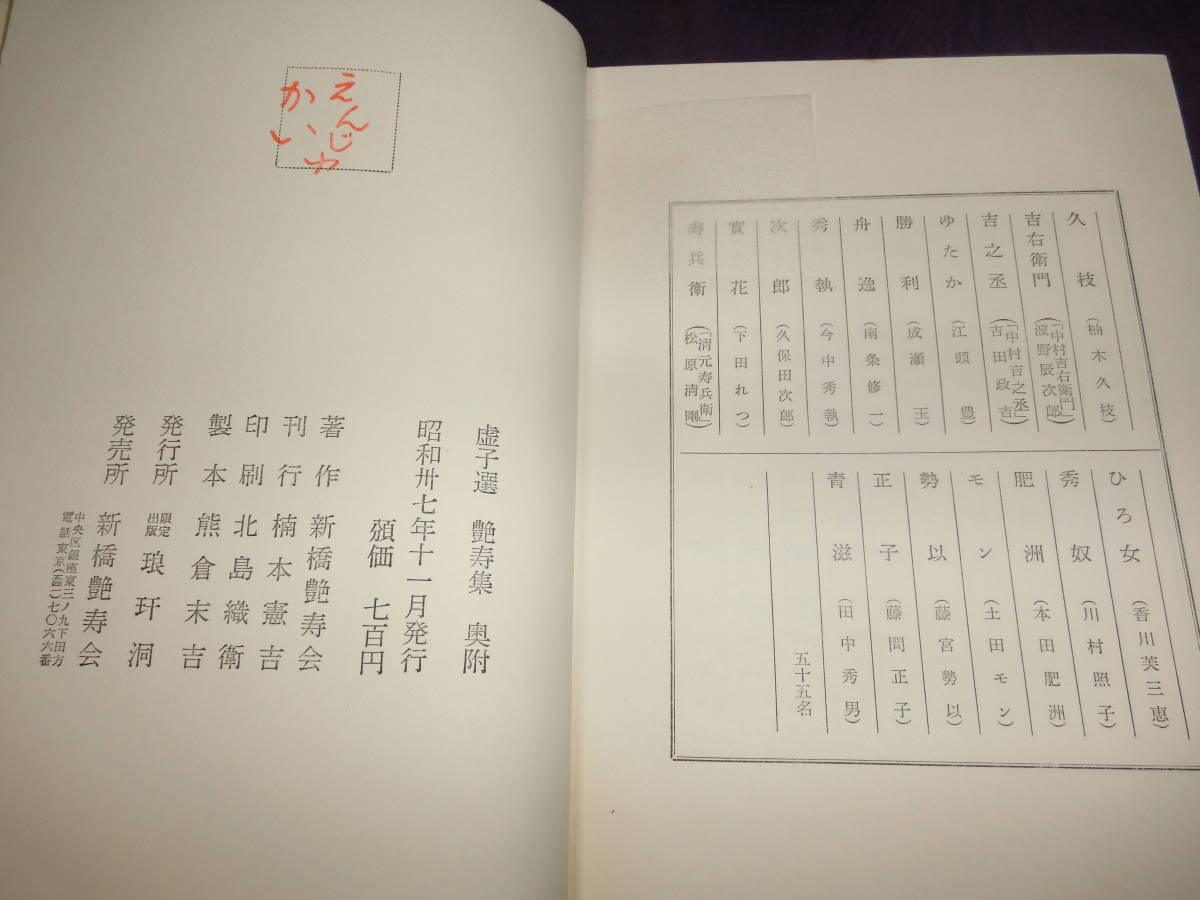 久枝（柚木久枝）
吉右衛門（「中村吉右衛門」波野辰次郎）
吉之丞（「中村吉之丞」吉田政吉）
ゆたか（江頭豊）
勝利（成瀬玉）
舟逸（南条修一）
秀執（今中秀執）
次郎（久保田次郎）
實花（下田れつ）
寿兵衛（「清元寿兵衛」松原清剛）
ひろ女（香川芙三恵）
秀奴（川村照子）
肥洲（本田肥洲）
モン（土田モン）
勢以（藤宮勢以）
正子（藤間正子）
青滋（田中秀男）
五十五名
えんじゅ
かい
虚子選 艶寿集 奥附
昭和卅七年十一月発行
頒価 七百円
著作 新橋艶寿会
刊行 楠本憲吉
印刷 北島織衛
製本 熊倉末吉
発行所 限定出版 琅玕洞
発売所 新橋艶寿会
中央区銀座東三ノ九下田方
電話東京（五四一）七〇六六番